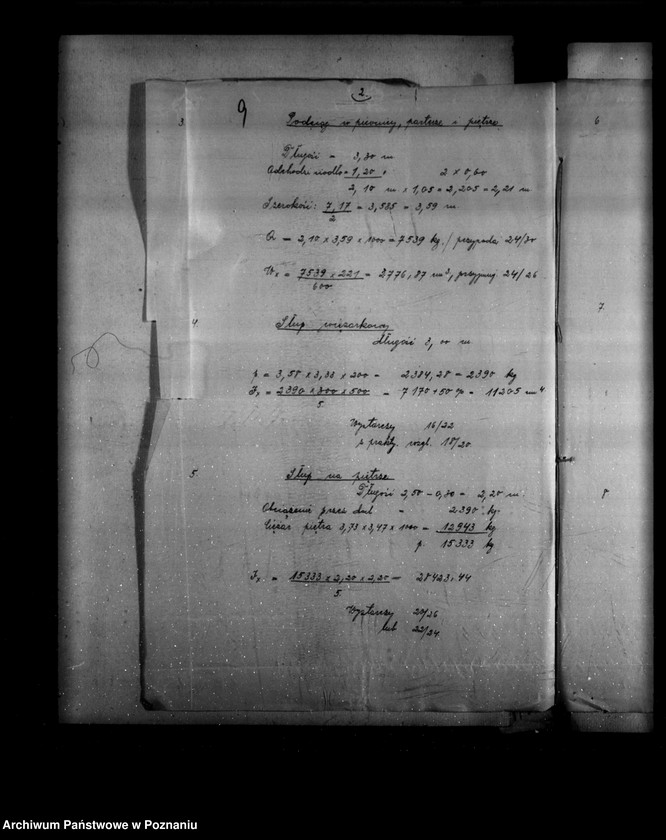 2.
9
3. Podciąg w piwnicy, parterze i piętrze
Długość = 3,30 m
Odchodzi siodło = 1,20 " 2 x 0,60
2,10 m x 1,05 = 2,205 = 2,21 m
Szerokość: 7,17 / 2 = 3,585 = 3,59 m
Q = 2,10 x 3,59 x 1000 = 7539 kg. / przypada 24/30
W₁ = 7539 x 221 / 600 = 2776,87 cm³, przyjmuję 24/26
4. Słup wieszarkowy
długość 3,00 m
p = 3,58 x 3,33 x 200 = 2384,28 = 2390 kg
J₁ = 2390 x 300 x 500 / 5. = 7170 + 50 % = 11205 cm⁴
Wystarczy 16/22
z prakt. wzgl. 18/20
5. Słup na piętrze
Długość 2,50 - 0,30 = 2,20 m
Obciążenie przez dach = 2390 kg.
Ciężar piętra 3,73 x 3,47 x 1000 = 12943 kg
p. 15333 kg
J₁ = 15333 x 2,20 x 2,20 / 5. = 28423,44
Wystarczy 20/26
lub 22/24
6
7.
8
Archiwum Państwowe w Poznaniu